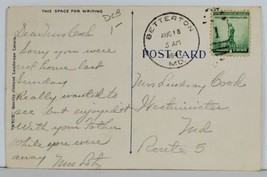 THIS SPACE FOR WRITING
DCB
1-
BETTERTON
AUG 18
5 AM
MD.
POST CARD
Dear Miss Cook
Sorry you were
not home last
Sunday
Really wanted to
see but enjoyed it
With your Father
while you were
away
Miss Lindsay Cook
Westminster
Md
Route 5